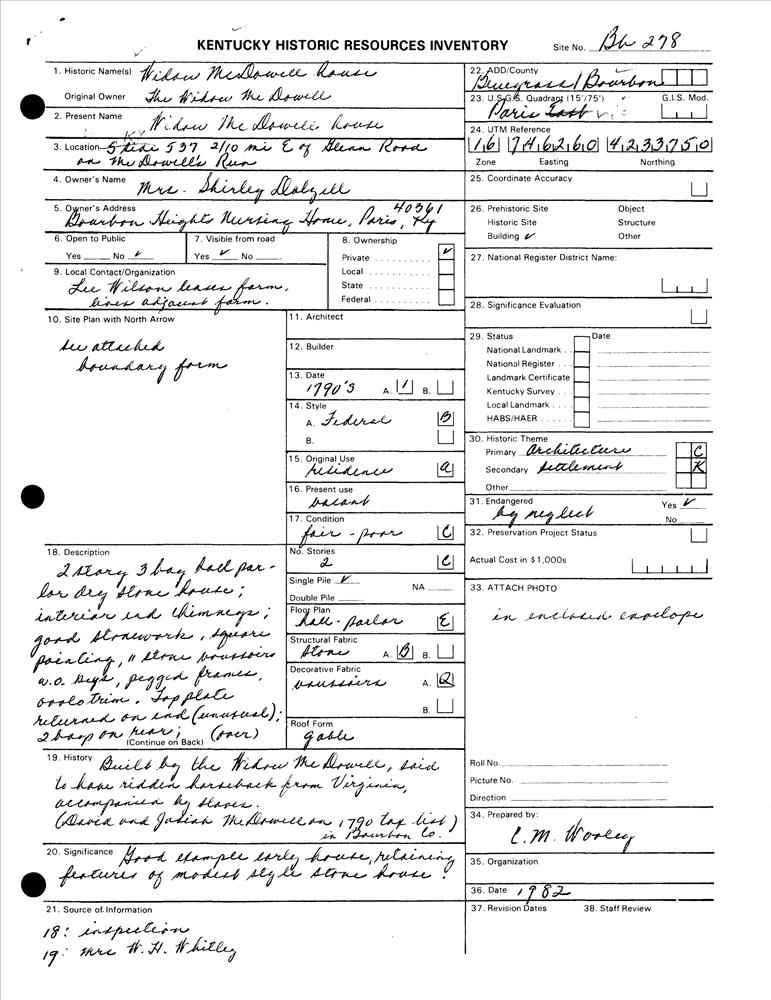 KENTUCKY HISTORIC RESOURCES INVENTORY
Site No. Bb 278
1. Historic Name(s) Widow McDowell house
Original Owner The Widow McDowell
2. Present Name Widow McDowell house
3. Location KY 537 2/10 mi E of Glenn Road
on McDowell's Run
4. Owner's Name Mrs. Shirley Dalzell
5. Owner's Address 40361
Bourbon Heights Nursing Home, Paris, Ky
6. Open to Public
Yes No ✓
7. Visible from road
Yes ✓ No
8. Ownership
Private ✓
Local
State
Federal
9. Local Contact/Organization
Lee Wilson leases farm,
lives adjacent farm.
10. Site Plan with North Arrow
see attached
boundary form
11. Architect
12. Builder
13. Date
1790's A. 1 B.
14. Style
A. Federal B
B.
15. Original Use
residence a
16. Present use
vacant
17. Condition
fair - poor C
No. Stories
2 C
Single Pile ✓
NA
Double Pile
Floor Plan
hall-parlor E
Structural Fabric
stone A. B B.
Decorative Fabric
voussoirs A. Q
B.
Roof Form
gable
18. Description
2 story 3 bay hall par-
lor dry stone house;
interior end chimneys;
good stonework, square
pointing, 11 stone voussoirs
w.o. keys, pegged frames,
ovolo trim. Top plate
returned on end (unusual);
2 bays on rear; (over)
(Continue on Back)
19. History Built by the Widow McDowell, said
to have ridden horseback from Virginia,
accompanied by slaves.
(David and Josiah McDowell on 1790 tax list)
in Bourbon Co.
20. Significance Good example early house, retaining
features of modest style stone house.
21. Source of Information
18: inspection
19: Mrs W. H. Whitley
22. ADD/County
Bluegrass/Bourbon
23. U.S.G.S. Quadrant (15'/75') G.I.S. Mod.
Paris East
24. UTM Reference
16 746260 4233750
Zone Easting Northing
25. Coordinate Accuracy
26. Prehistoric Site Object
Historic Site Structure
Building ✓ Other
27. National Register District Name:
28. Significance Evaluation
29. Status Date
National Landmark
National Register
Landmark Certificate
Kentucky Survey
Local Landmark
HABS/HAER
30. Historic Theme
Primary Architecture C
Secondary settlement K
Other
31. Endangered Yes ✓
by neglect No
32. Preservation Project Status
Actual Cost in $1,000s
33. ATTACH PHOTO
in enclosed envelope
Roll No.
Picture No.
Direction
34. Prepared by:
C. M. Wooley
35. Organization
36. Date 1982
37. Revision Dates 38. Staff Review